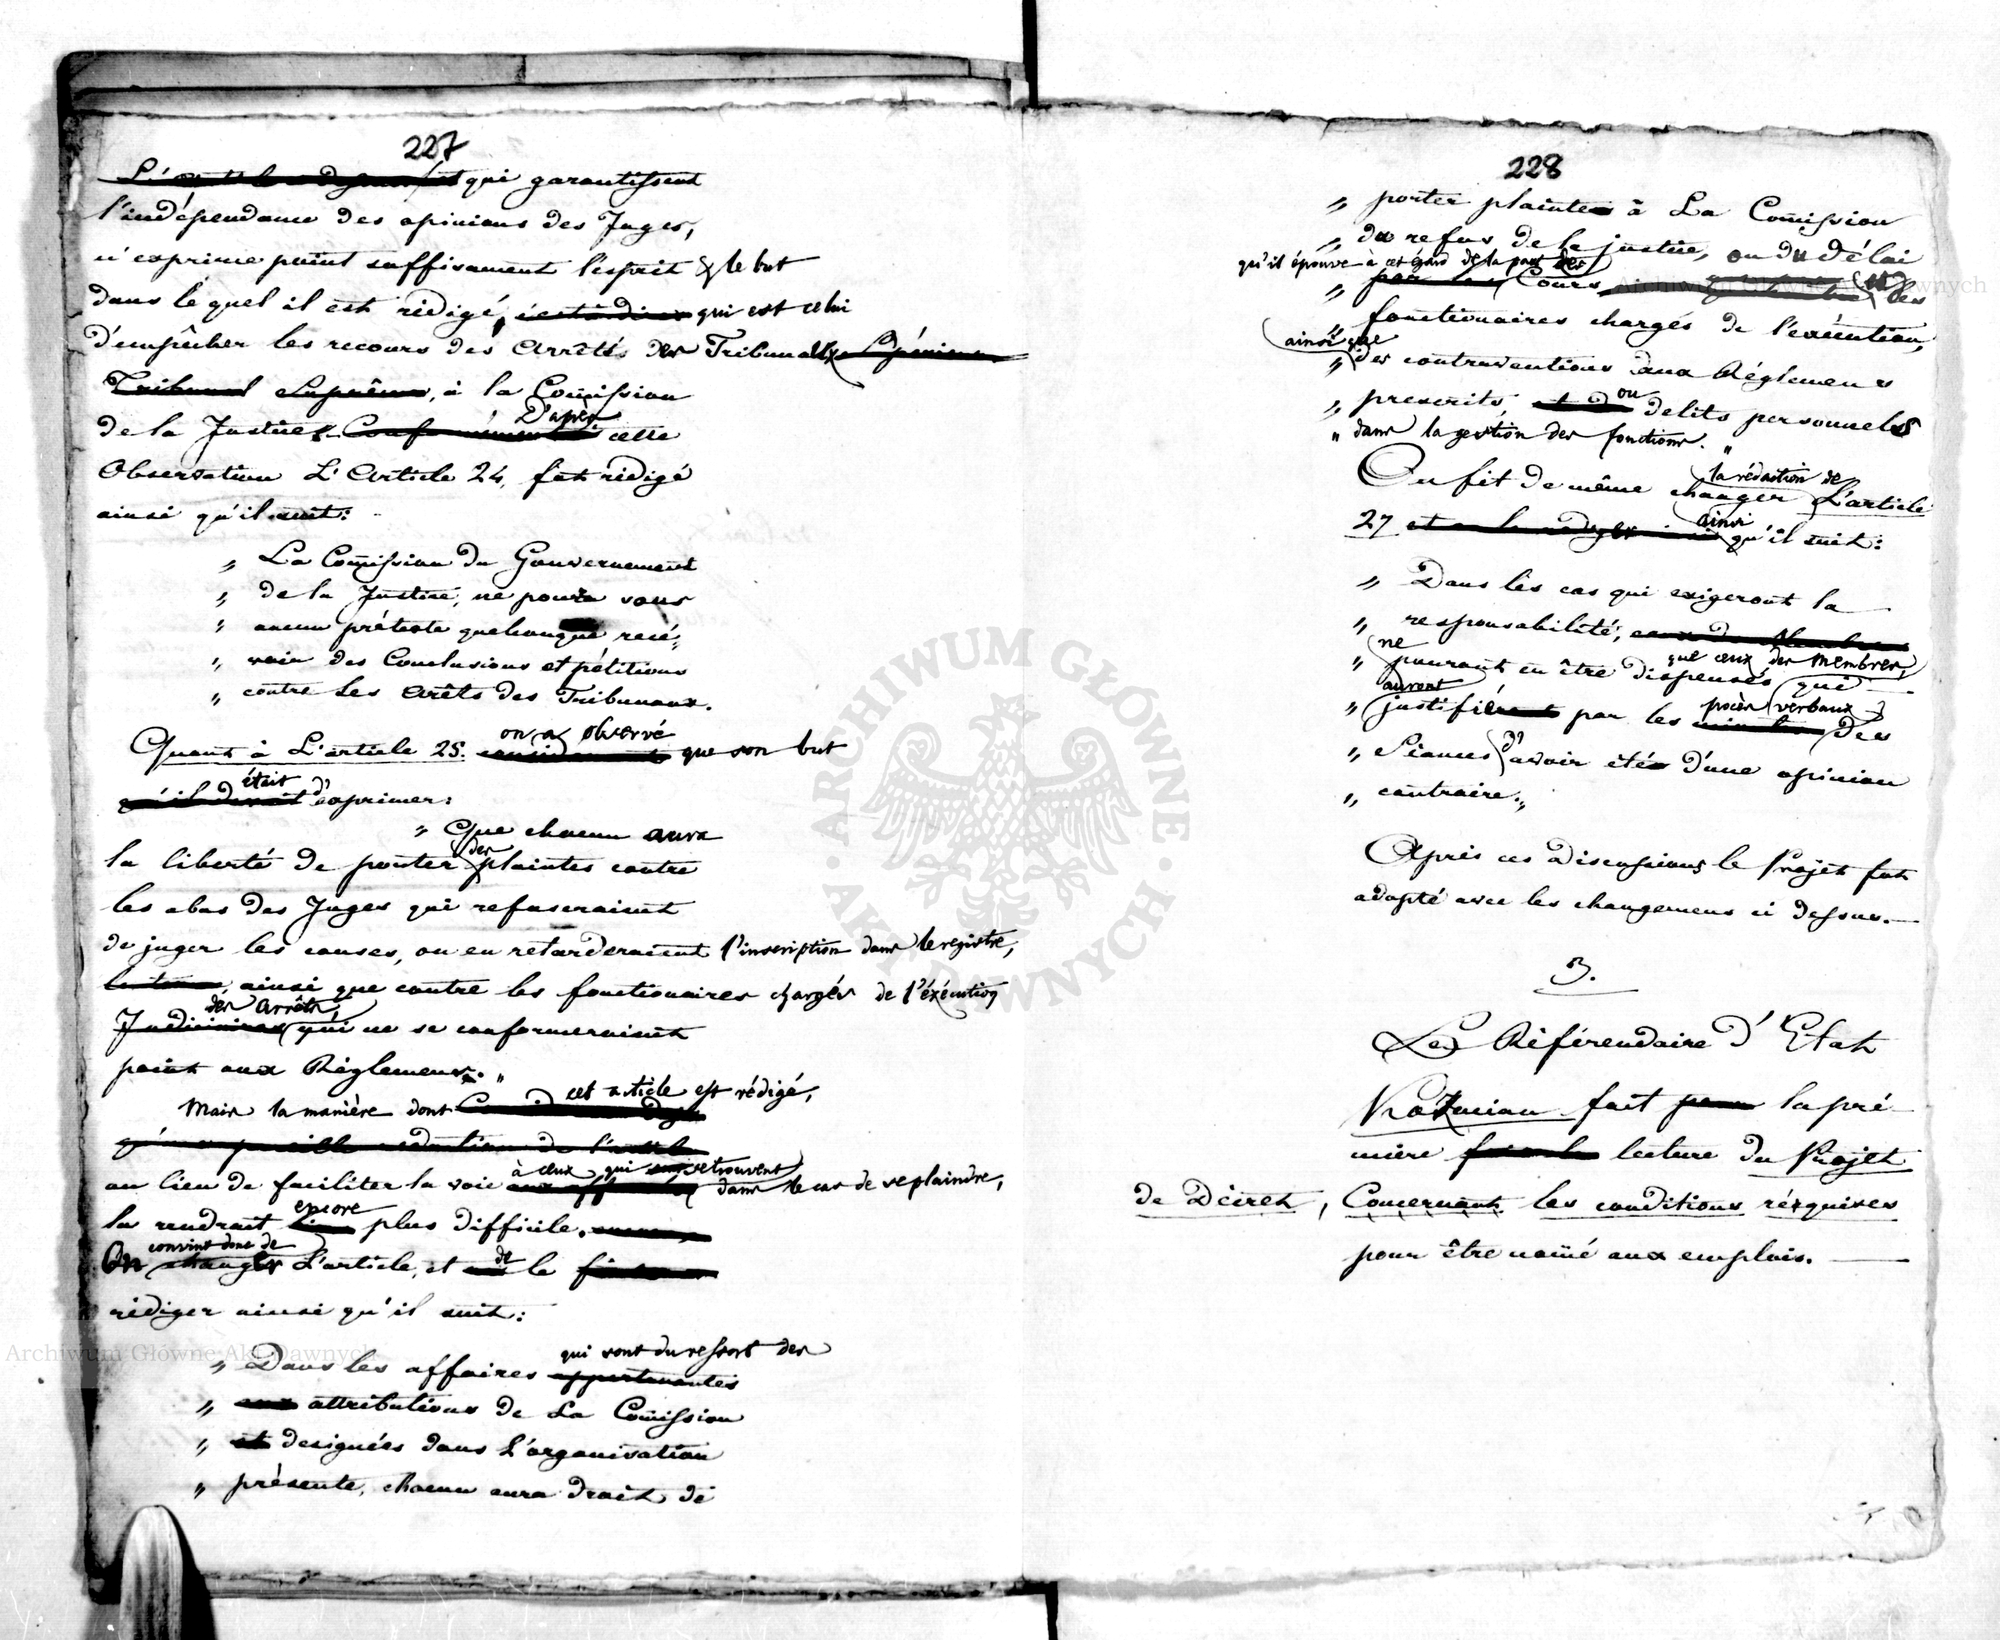 227
qui garantissent
l'indépendance des opinions des Juges,
n'exprime point suffisament l'esprit & le but
dans le quel il est rédigé, c'est à dire qui est celui
d'empêcher les recours des Arrêtés des Tribunaux
Tribunal Suprême, à la Com̄ission
d'après
de la Justice, Conformément à cette
Observation L'Article 24, fut rédigé
ainsi qu'il suit:
„ La Com̄ission du Gouvernement
„ de la Justice, ne poura sous
„ aucun prétexte quelconque recé-
„ voir des Conclusions et pétitions
„ contre les Arêts des Tribunaux.
on a observé
Quant à L'article 25. considerant que son but
était d'
qu'il devait exprimer:
„ Que chacun aura
des
la liberté de porter plaintes contre
les abus des Juges qui refuseraient
de juger les causes, ou en retarderaient l'inscription dans le registre,
ainsi que contre les fonctionaires chargés de l'éxécution
des Arrêts,
Judiciaires qui ne se conformeraient
point aux Réglemens. „
cet article est rédigé,
Mais la manière dont
qu'une pareille rédaction de l'article
à ceux qui se trouvent
au lieu de faciliter la voie dans le cas de se plaindre,
encore
la rendrait plus difficile.
convint donc de
On changer L'article, et de le
rédiger ainsi qu'il suit:
qui sont du ressort des
„ Dans les affaires appartenantes
„ aux attributions de La Com̄ission
„ et designées dans L'organisation
„ présente, chacun aura droit de
228
„ porter plainte à La Com̄ission
„ du refus de la justice, ou du délai
qu'il éprouve à cet égard de la part des
„ par les Cours et des
„ fonctionaires chargés de l'exécution,
ainsi que
„ des contraventions aux Réglemens
ou
„ prescrits et delits personnels
„ dans la gestion des fonctions. „
la rédaction de
On fit de même changer L'article
ainsi
27 et on le rediger qu'il suit:
„ Dans les cas qui exigeront la
„ responsabilité,
ne que ceux des Membres,
„ pourront en être dispensés qui
auront procès verbaux
„ justifié par les minutes des
d'
„ Séances avoir été d'une opinion
„ contraire. „
Après ces discussions le Projet fut
adopté avec les changemens ci dessus. —
3.
Le Référendaire d'Etat
Kozmian fait la pré-
mière lecture du Projet
de Décret, Concernant les conditions réquises
pour être nom̄é aux emplois. —
Archiwum Główne Akt Dawnych
Archiwum Główne Akt Dawnych
ARCHIWUM GŁÓWNE · AKT DAWNYCH ·